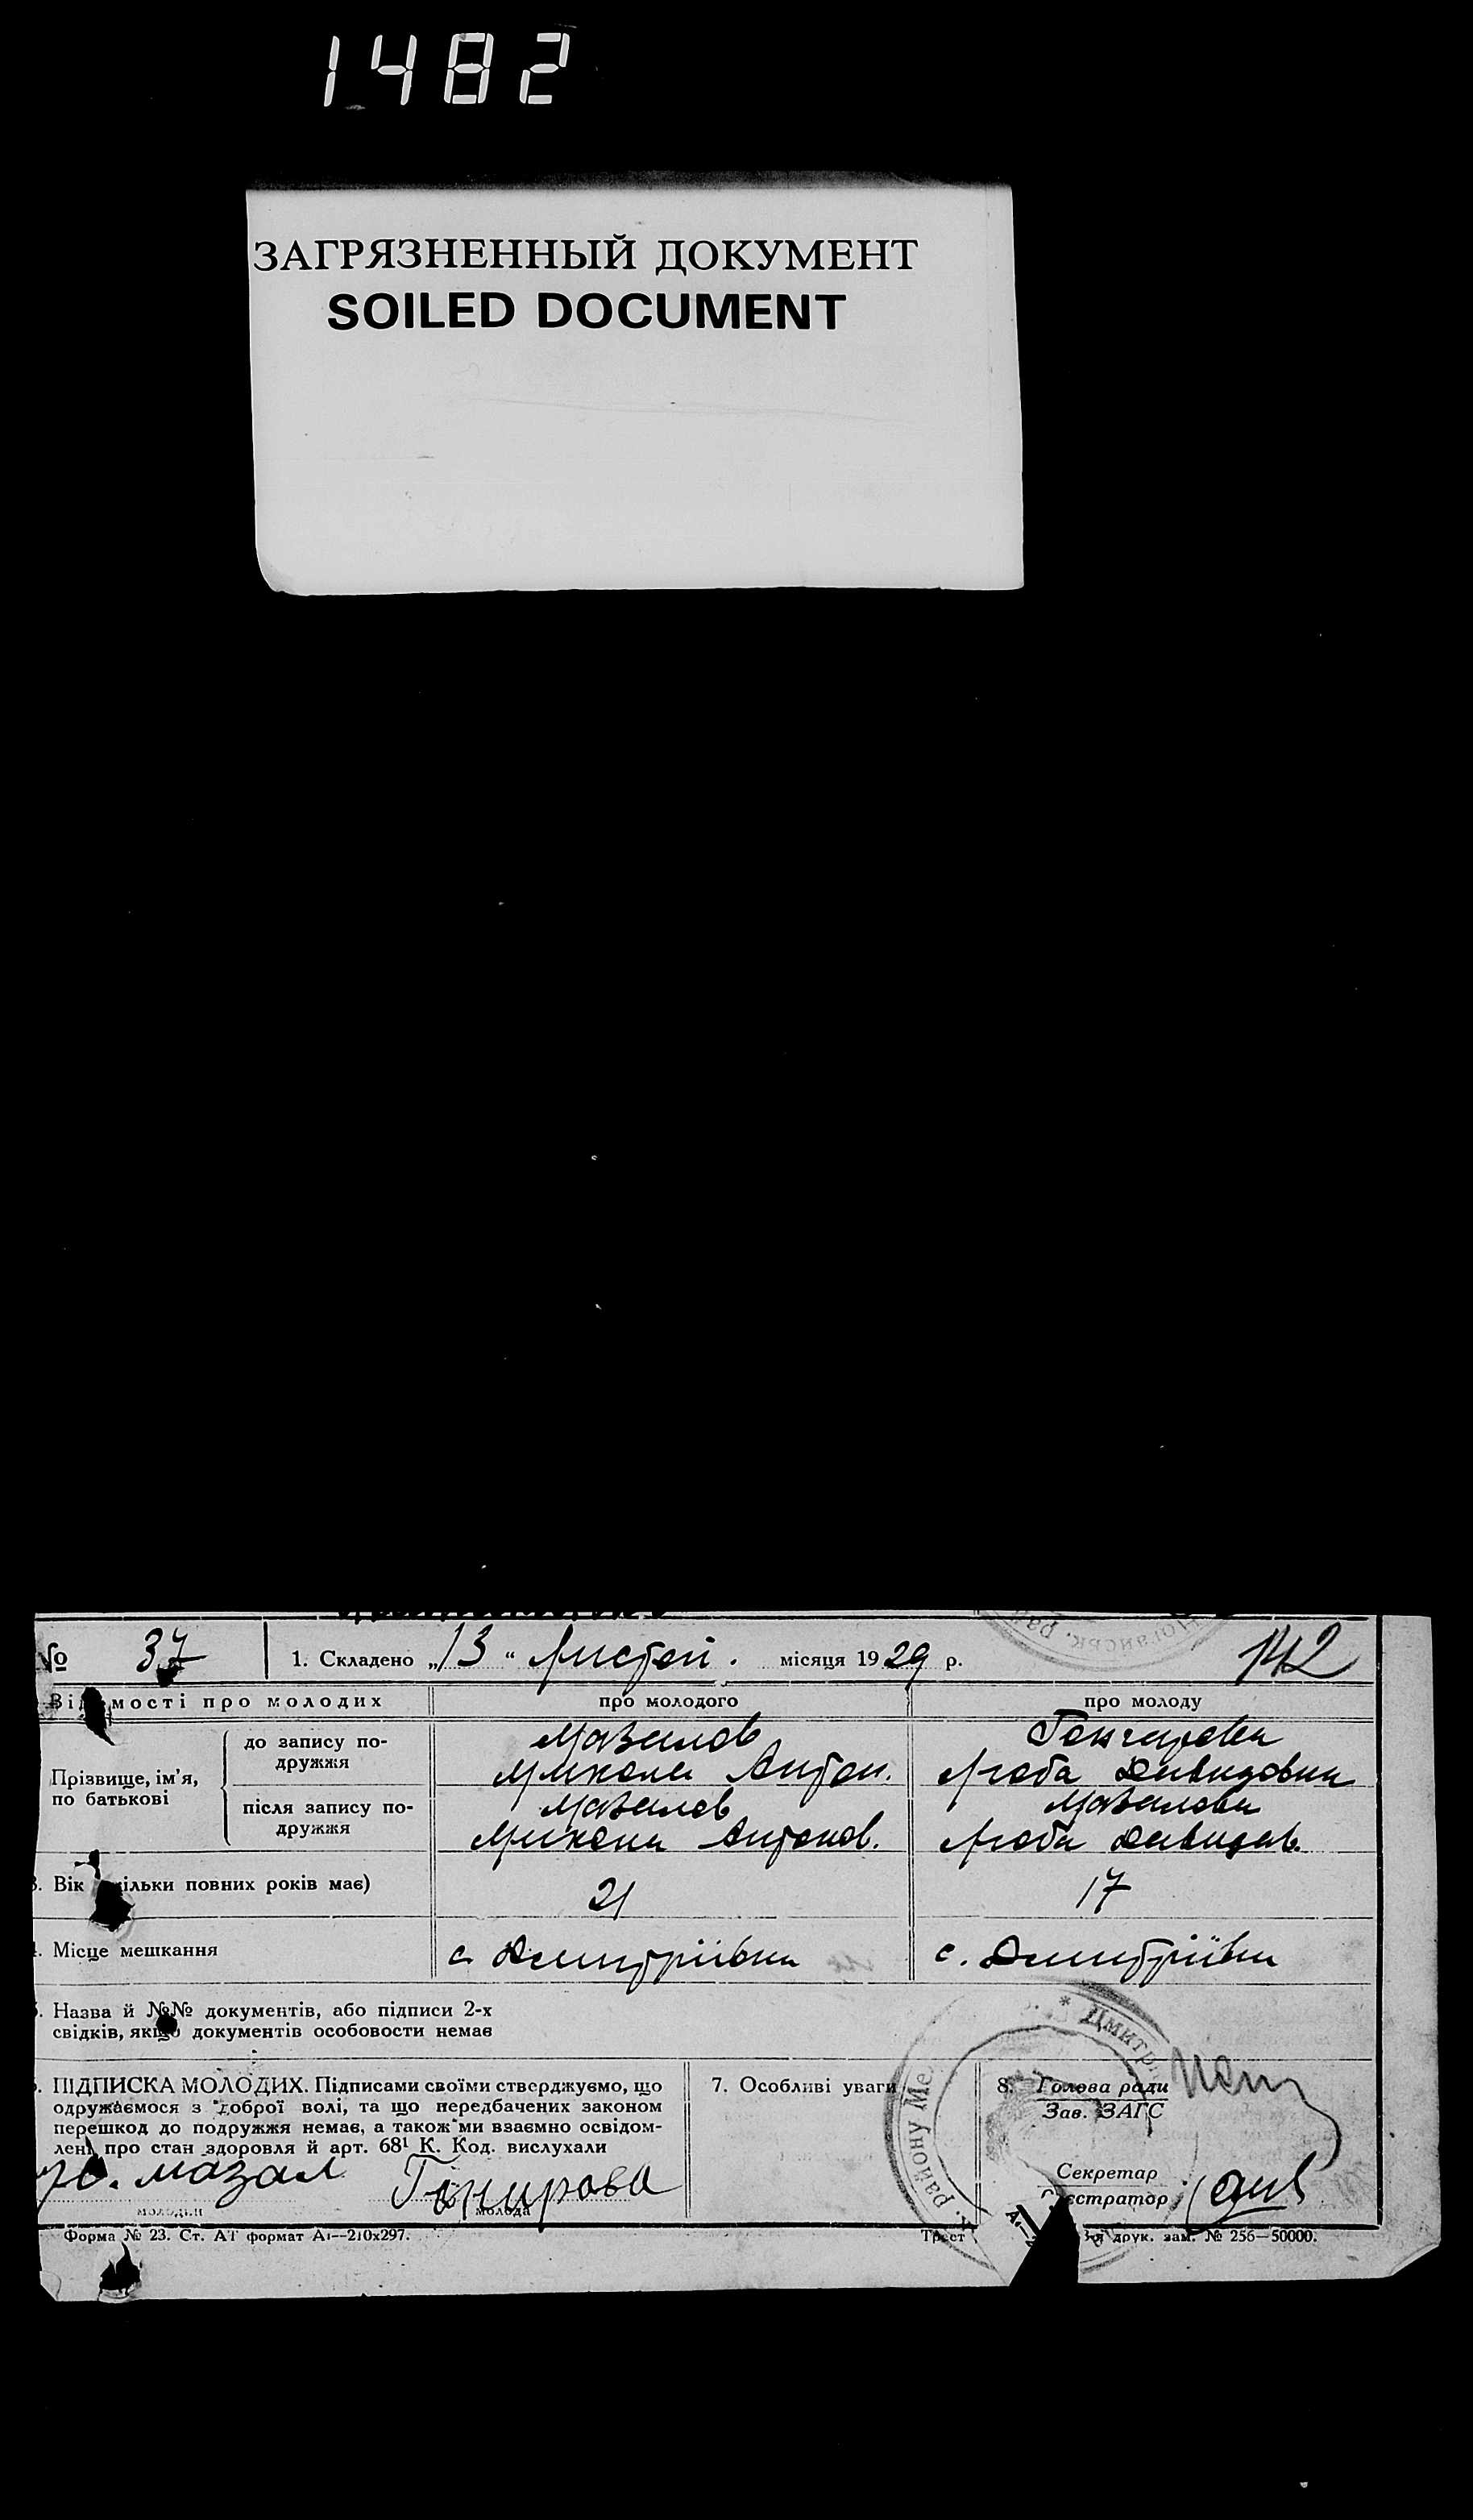 1482
ЗАГРЯЗНЕННЫЙ ДОКУМЕНТ
SOILED DOCUMENT
№ 37 1. Складено „13“ Листоп. місяця 1929 р. 142
Відомості про молодих про молодого про молоду
Прізвище, ім'я, по батькові
до запису подружжя
Мазалов Гончарова
Микола Антон. Люба Давидовна
після запису подружжя
Мазалов Мазалова
Микола Антонов. Люба Давидов.
3. Вік (скільки повних років має) 21 17
4. Місце мешкання с. Дмитріївка с. Дмитріївка
5. Назва й №№ документів, або підписи 2-х
свідків, якщо документів особовости немає
6. ПІДПИСКА МОЛОДИХ. Підписами своїми стверджуємо, що
одружаємося з доброї волі, та що передбачених законом
перешкод до подружжя немає, а також ми взаємно освідом-
лені про стан здоровля й арт. 68¹ К. Код. вислухали
мазал
молодий молода
7. Особливі уваги
8. Голова ради
Зав. ЗАГС
Секретар
Реєстратор
Форма № 23. Ст. АТ формат А₁—210х297. Трест 3-я друк. зам. № 256—50000.
району Ме * Дмитр